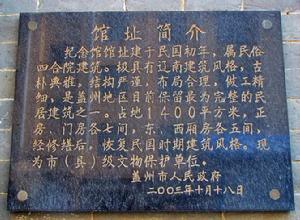 馆址简介
纪念馆馆址建于民国初年，属民俗
四合院建筑。极具有辽南建筑风格，古
朴典雅，结构严谨，布局合理，做工精
细，是盖州地区目前保留最为完整的民
居建筑之一。占地1400平方米，正
房、门房各七间，东、西厢房各五间，
经修堪后，恢复民国时期建筑风格。现
为市（县）级文物保护单位。
盖州市人民政府
二00三年十月十八日